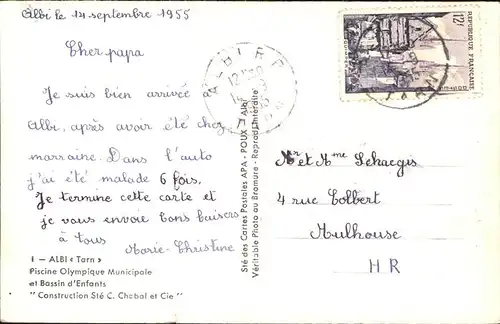 Albi le 14 septembre 1955
Cher papa
Je suis bien arrivée à
Albi, après avoir été chez
marraine. Dans l'auto
j'ai été malade 6 fois.
Je termine cette carte et
je vous envoie bons baisers
à tous
Marie-Christine
1 - ALBI « Tarn »
Piscine Olympique Municipale
et Bassin d'Enfants
" Construction Sté C. Chabal et Cie "
Sté des Cartes Postales APA - POUX - Albi
Véritable Photo au Bromure - Reprod. Interdite
ALBI R.P.
12F
REPUBLIQUE FRANÇAISE
QUIMPER
Mr et Mme Lehaegis
4 rue Colbert
Mulhouse
HR